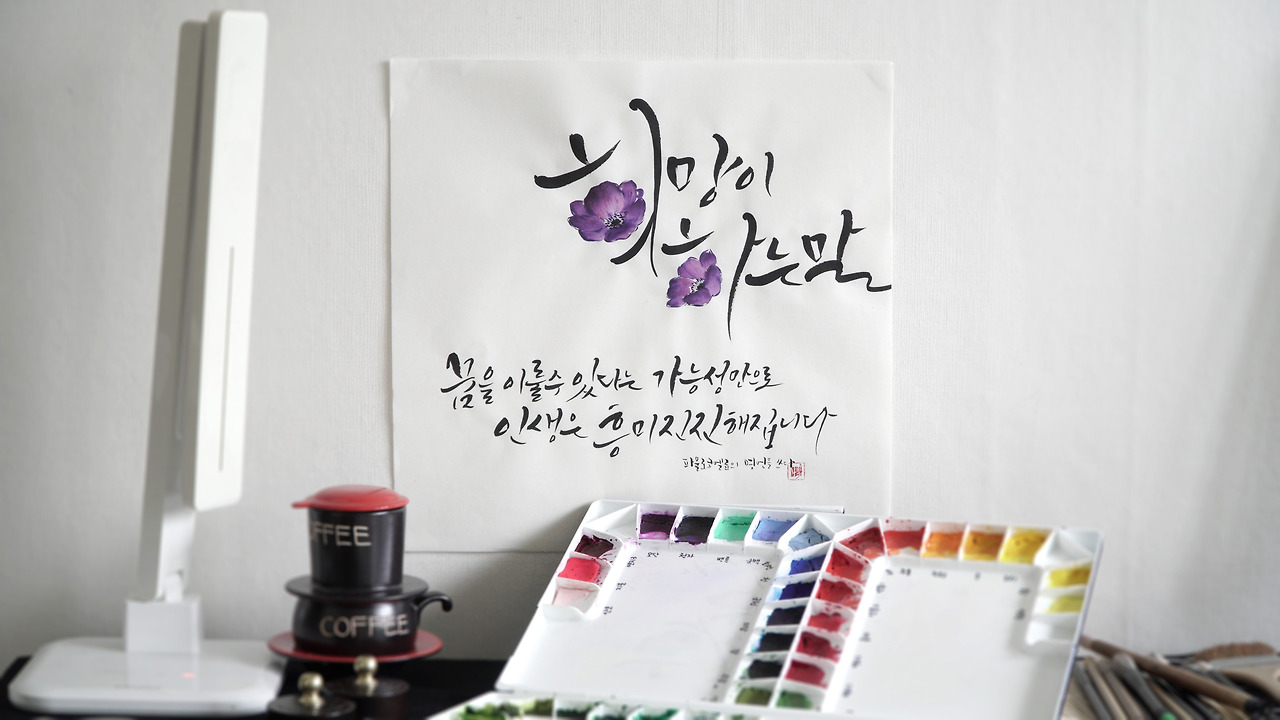 희망이
하는말
꿈을 이룰수 있다는 가능성만으로
인생은 흥미진진해집니다
파울로코엘료의 명언을 쓰다
COFFEE
COFFEE